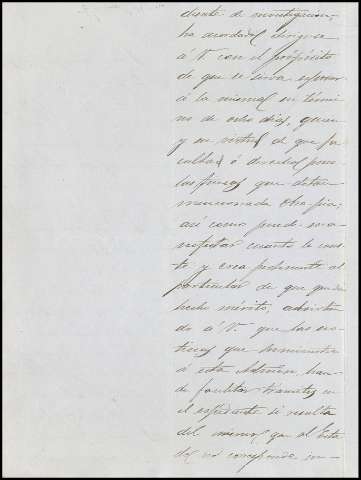 diente de investigacion,
ha acordado dirigirse
á V. con el propósito
de que se sirva espresar
á la misma en térmi-
no de ocho dias, quien
y en virtud de que fa-
cultad ó derecho posee
las fincas que detan
mencionada Obra pia;
así como puede ma-
nifestar cuanto le cons-
te y crea pertinente al
particular de que queda
hecho mérito, advirtien
do á V. que las no-
ticias que suministre
á esta Admon, han
de facilitar trámites en
el espediente si resulta
del mismo que al Esta
do no corresponde in-